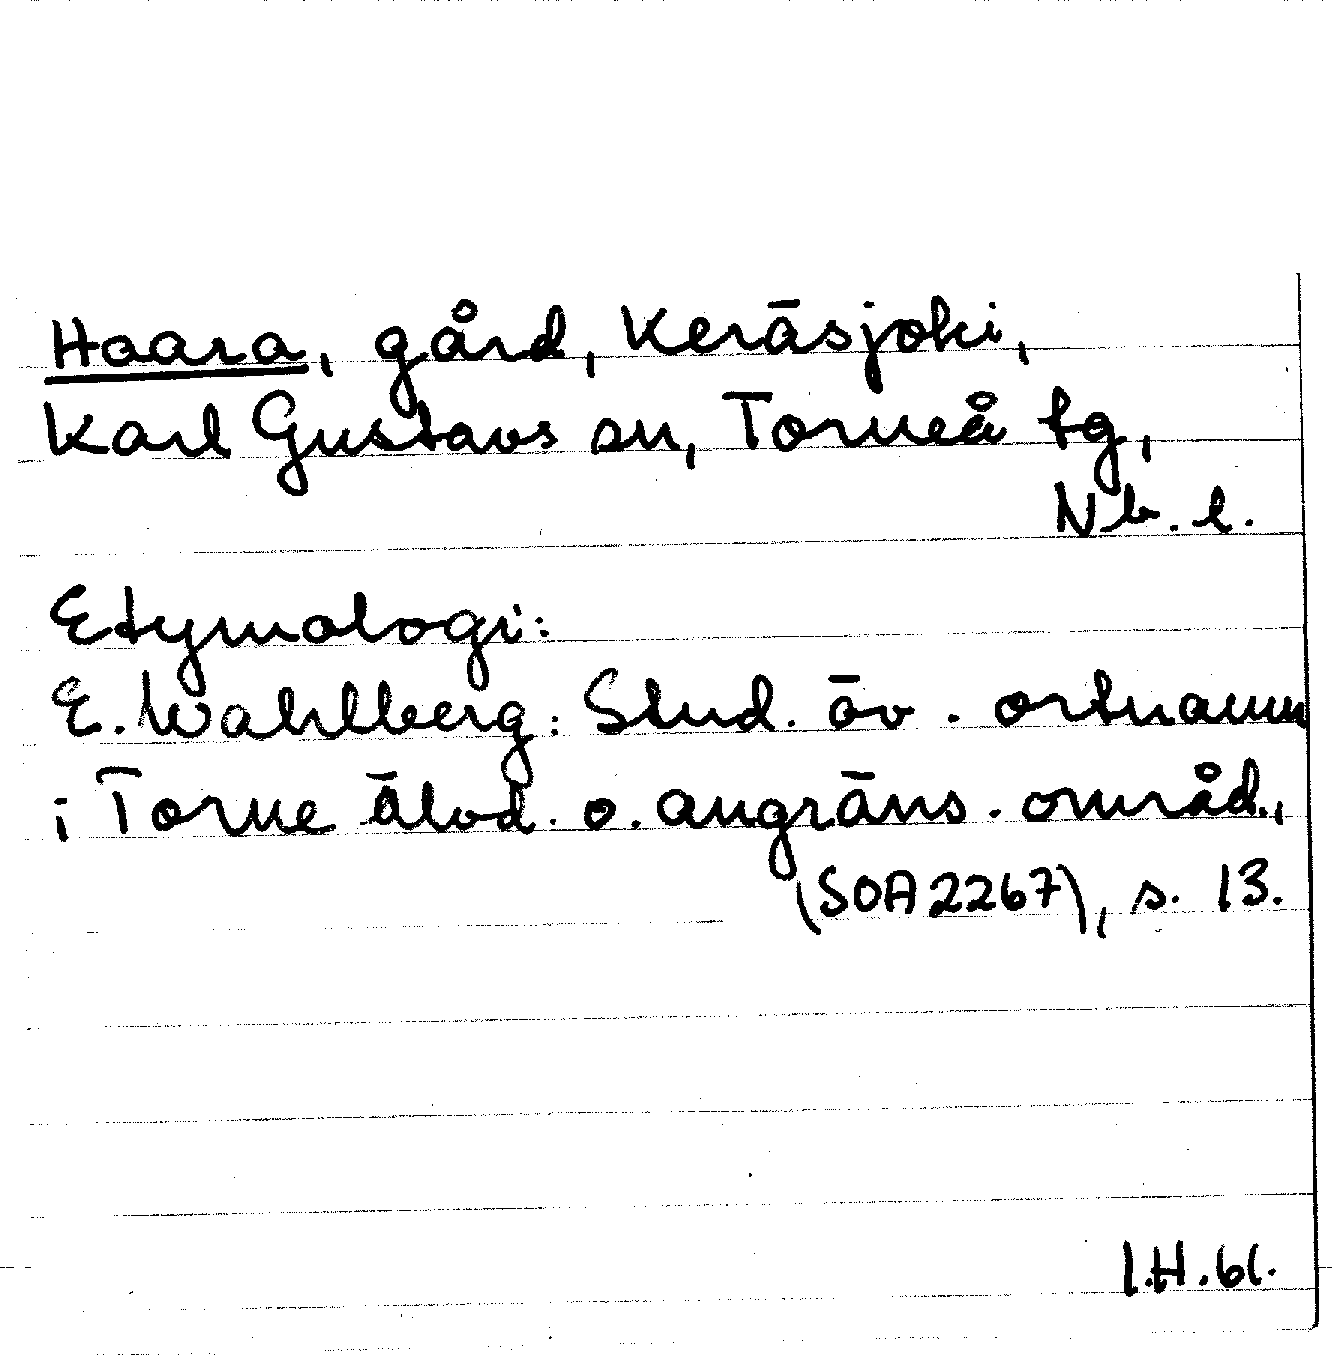 Haara, gård, Keräsjoki,
Karl Gustavs sn, Torneå tg,
Nb. l.
Etymologi:
E. Wahlberg: Stud. öv. ortnamn
i Torne älvd. o. angräns. områd.,
(SOA 2267), s. 13.
I.H.61.